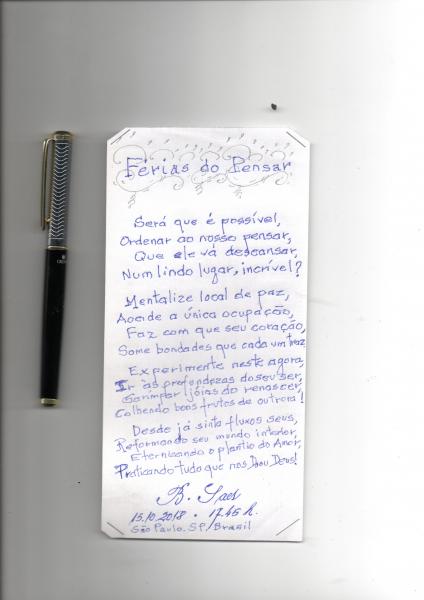 Férias do Pensar
Será que é possível,
Ordenar ao nosso pensar,
Que ele vá descansar,
Num lindo lugar, incrível?
Mentalize local de paz,
Acende a única ocupação,
Faz com que seu coração,
Some bondades que cada um traz
Experimente neste agora,
Ir às profundezas do seu ser,
Garimpar jóias do renascer,
Colhendo bons frutos de outrora!
Desde já sinta fluxos seus,
Reformando seu mundo interior,
Eternizando o plantio do Amor,
Praticando tudo que nos Dou Deus!
B. Saes
15.10.2018 - 17.45 h.
São Paulo. SP/Brazil